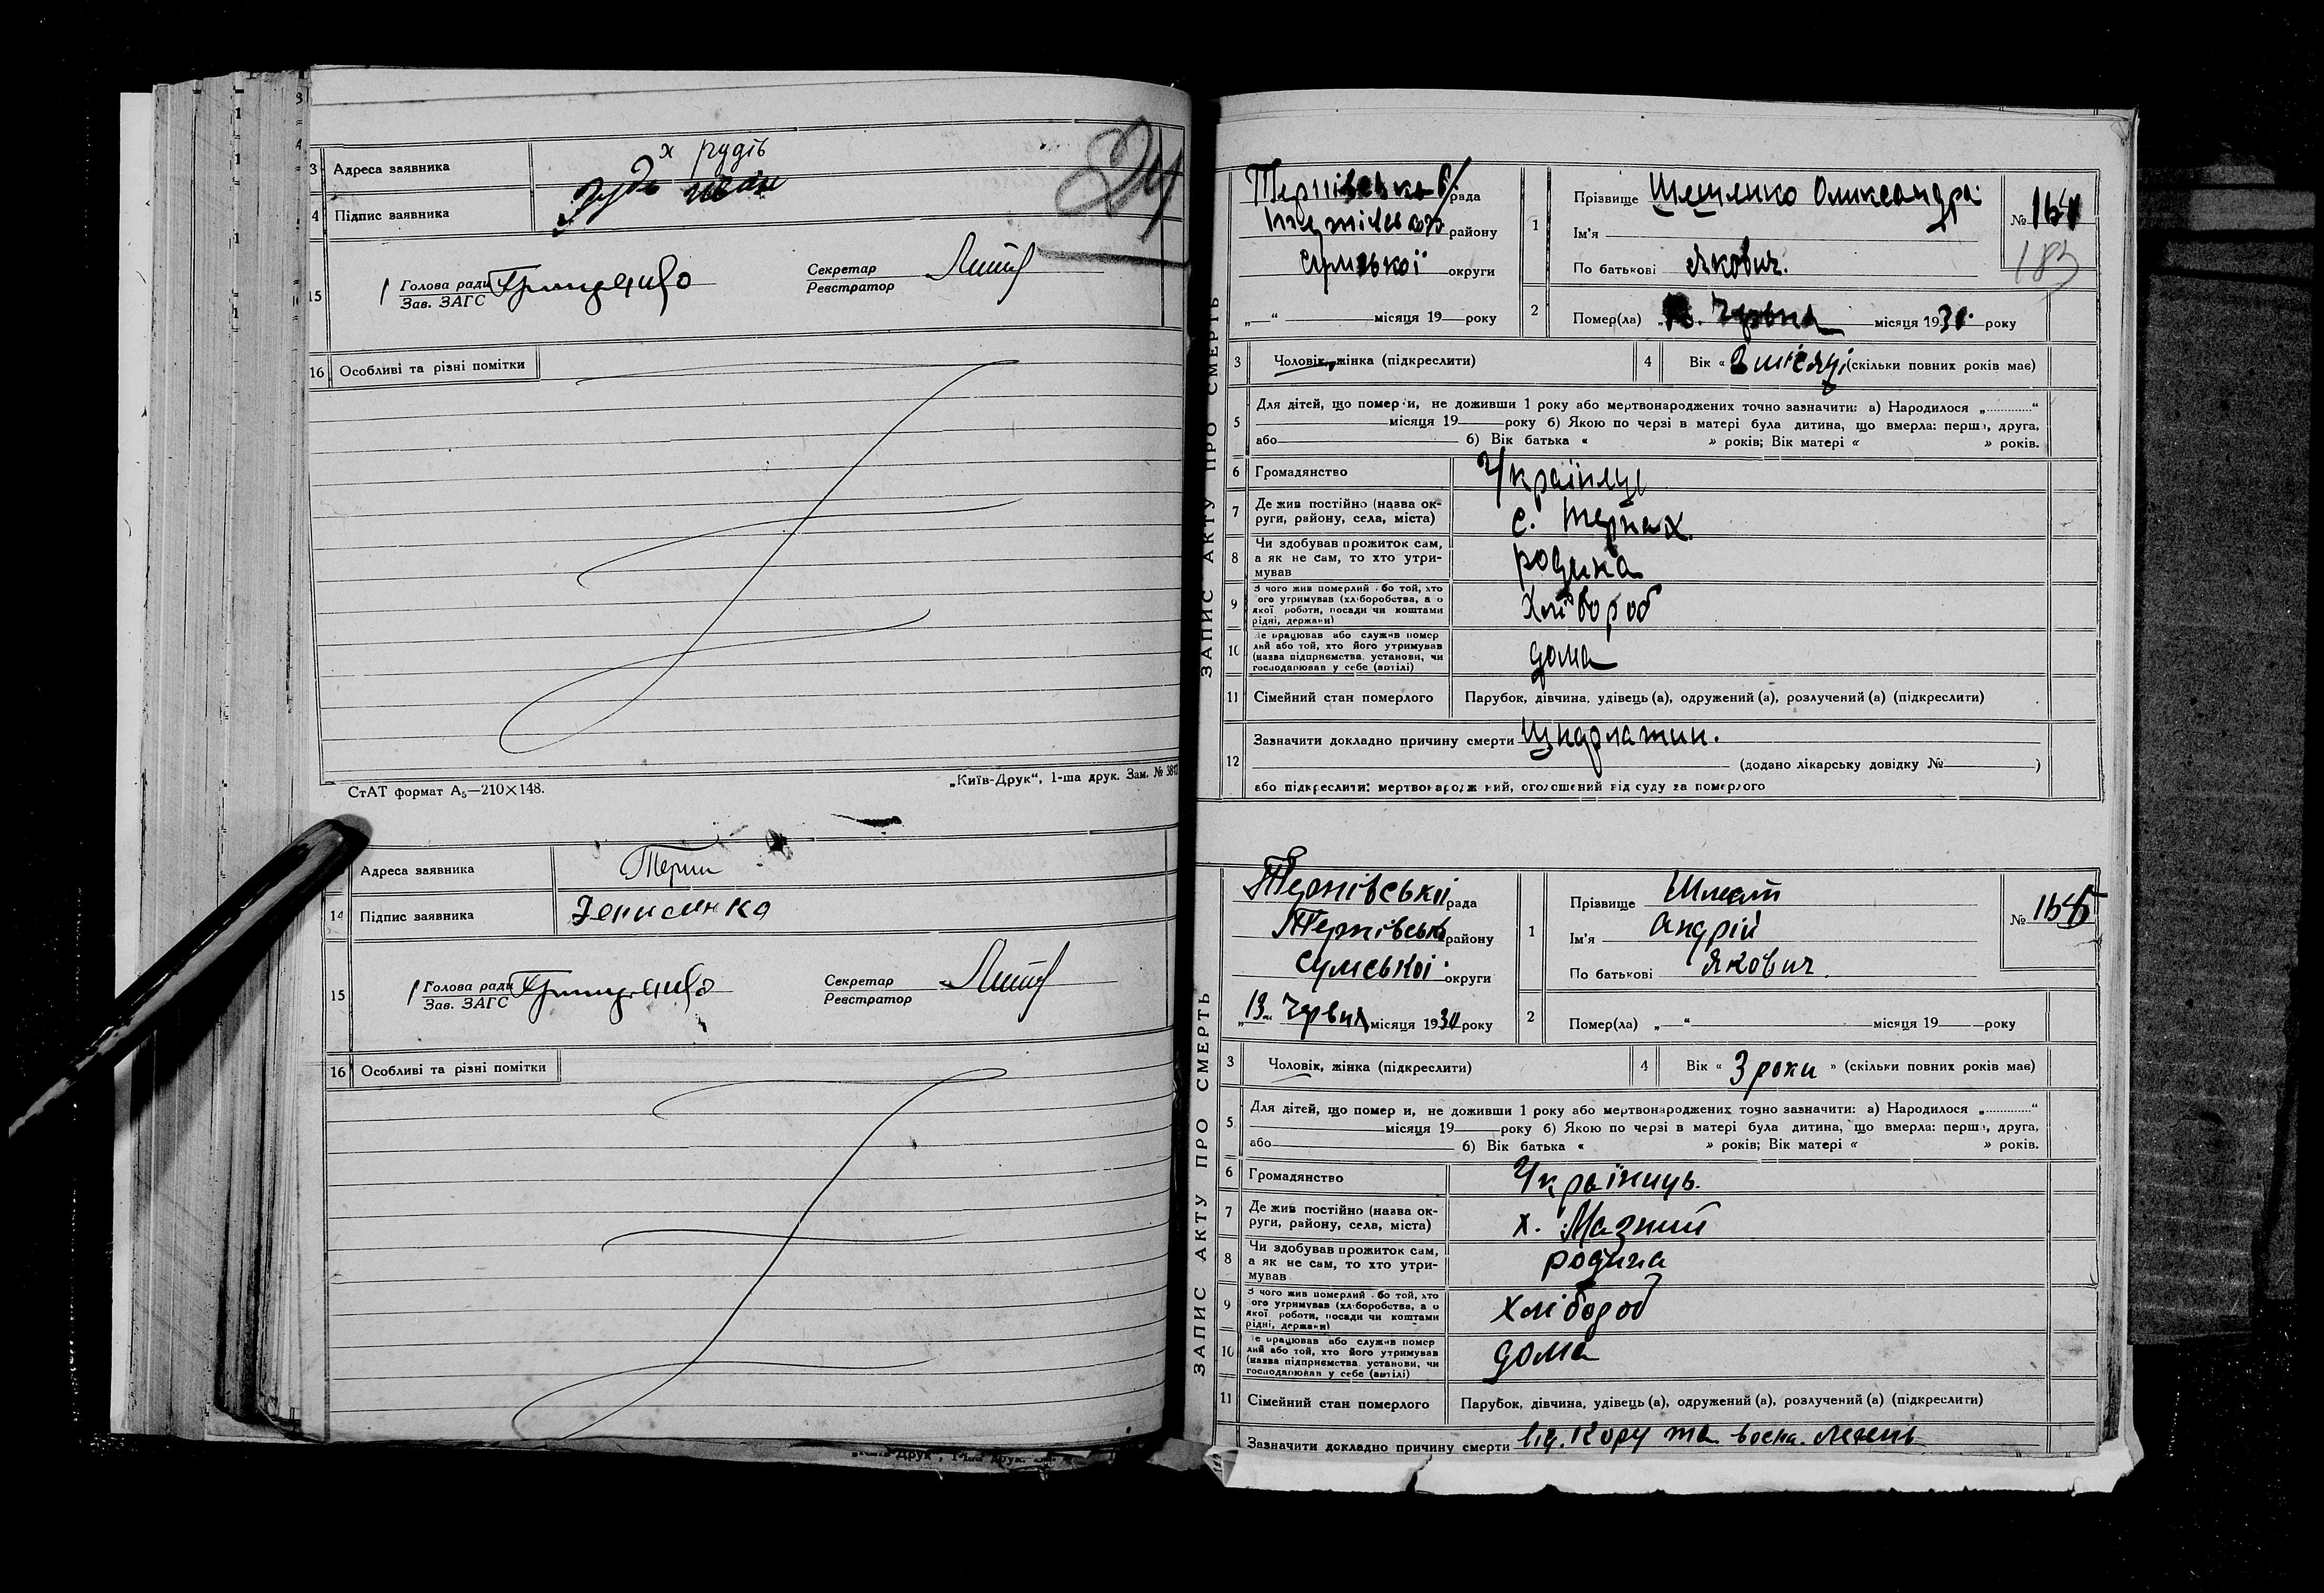 3 Адреса заявника х рудів
4 Підпис заявника
24
15 Голова ради Секретар
Зав. ЗАГС Реєстратор
16 Особливі та різні помітки
СтАТ формат А₅—210×148. „Київ-Друк“, 1-ша друк. Зам. №
Адреса заявника Терни
14 Підпис заявника Денисенко
15 Голова ради Секретар
Зав. ЗАГС Реєстратор
16 Особливі та різні помітки
ЗАПИС АКТУ ПРО СМЕРТЬ
Тернівської рада
району
Сумської округи
„ “ місяця 19 року
1 Прізвище Олександра
Ім'я
По батькові Якович.
№ 154
183
2 Помер(ла) Червня місяця 1930 року
3 Чоловік, жінка (підкреслити)
4 Вік « місяці (скільки повних років має)
5 Для дітей, що померли, не доживши 1 року або мертвонароджених точно зазначити: а) Народилося „ “
місяця 19 року б) Якою по черзі в матері була дитина, що вмерла: перша, друга,
або б) Вік батька « » років; Вік матері « » років.
6 Громадянство Українець
7 Де жив постійно (назва ок-
руги, району, села, міста) с. Тернах.
8 Чи здобував прожиток сам,
а як не сам, то хто утри-
мував родина
9 З чого жив померлий або той, хто
його утримував (хліборобства, а о
якої роботи, посади чи коштами
рідні, держави) Хлібороб
10 Де працював або служив помер
лий або той, хто його утримував
(назва підприємства, установи, чи
господарював у себе (артілі) дома
11 Сімейний стан померлого Парубок, дівчина, удівець (а), одружений (а), розлучений (а) (підкреслити)
12 Зазначити докладно причину смерти
(додано лікарську довідку № )
або підкреслити: мертвонароджений, оголошений від суду за померлого
ЗАПИС АКТУ ПРО СМЕРТЬ
Тернівської рада
Тернівськ району
Сумської округи
„13“ Червня місяця 1930 року
1 Прізвище Шмат
Ім'я Андрій
По батькові Якович
№ 155
2 Помер(ла) „ “ місяця 19 року
3 Чоловік, жінка (підкреслити)
4 Вік « 3 роки » (скільки повних років має)
5 Для дітей, що померли, не доживши 1 року або мертвонароджених точно зазначити: а) Народилося „ “
місяця 19 року б) Якою по черзі в матері була дитина, що вмерла: перша, друга,
або б) Вік батька « » років; Вік матері « » років.
6 Громадянство Українець.
7 Де жив постійно (назва ок-
руги, району, села, міста) х. Мазний
8 Чи здобував прожиток сам,
а як не сам, то хто утри-
мував родина
9 З чого жив померлий або той, хто
його утримував (хліборобства, а о
якої роботи, посади чи коштами
рідні, держави) Хлібороб
10 Де працював або служив помер
лий або той, хто його утримував
(назва підприємства, установи, чи
господарював у себе (артілі) дома
11 Сімейний стан померлого Парубок, дівчина, удівець (а), одружений (а), розлучений (а) (підкреслити)
Зазначити докладно причину смерти від. Кору та воспа. легень